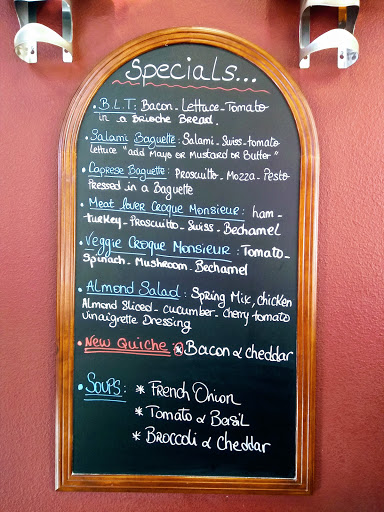 Specials...
• B.L.T: Bacon - Lettuce - Tomato
in a Brioche Bread.
• Salami Baguette: Salami - Swiss - tomato
lettuce "add Mayo or Mustard or Butter"
• Caprese Baguette: Proscuitto - Mozza - Pesto
Pressed in a Baguette
• Meat lover Croque Monsieur: ham -
turkey - Proscuitto - Swiss - Bechamel
• Veggie Croque Monsieur: Tomato -
Spinach - Mushroom - Bechamel
• Almond Salad: Spring Mix, chicken
Almond Sliced - cucumber - cherry tomato
Vinaigrette Dressing
• New Quiche: * Bacon & cheddar
• Soups: * French Onion
* Tomato & Basil
* Broccoli & Cheddar